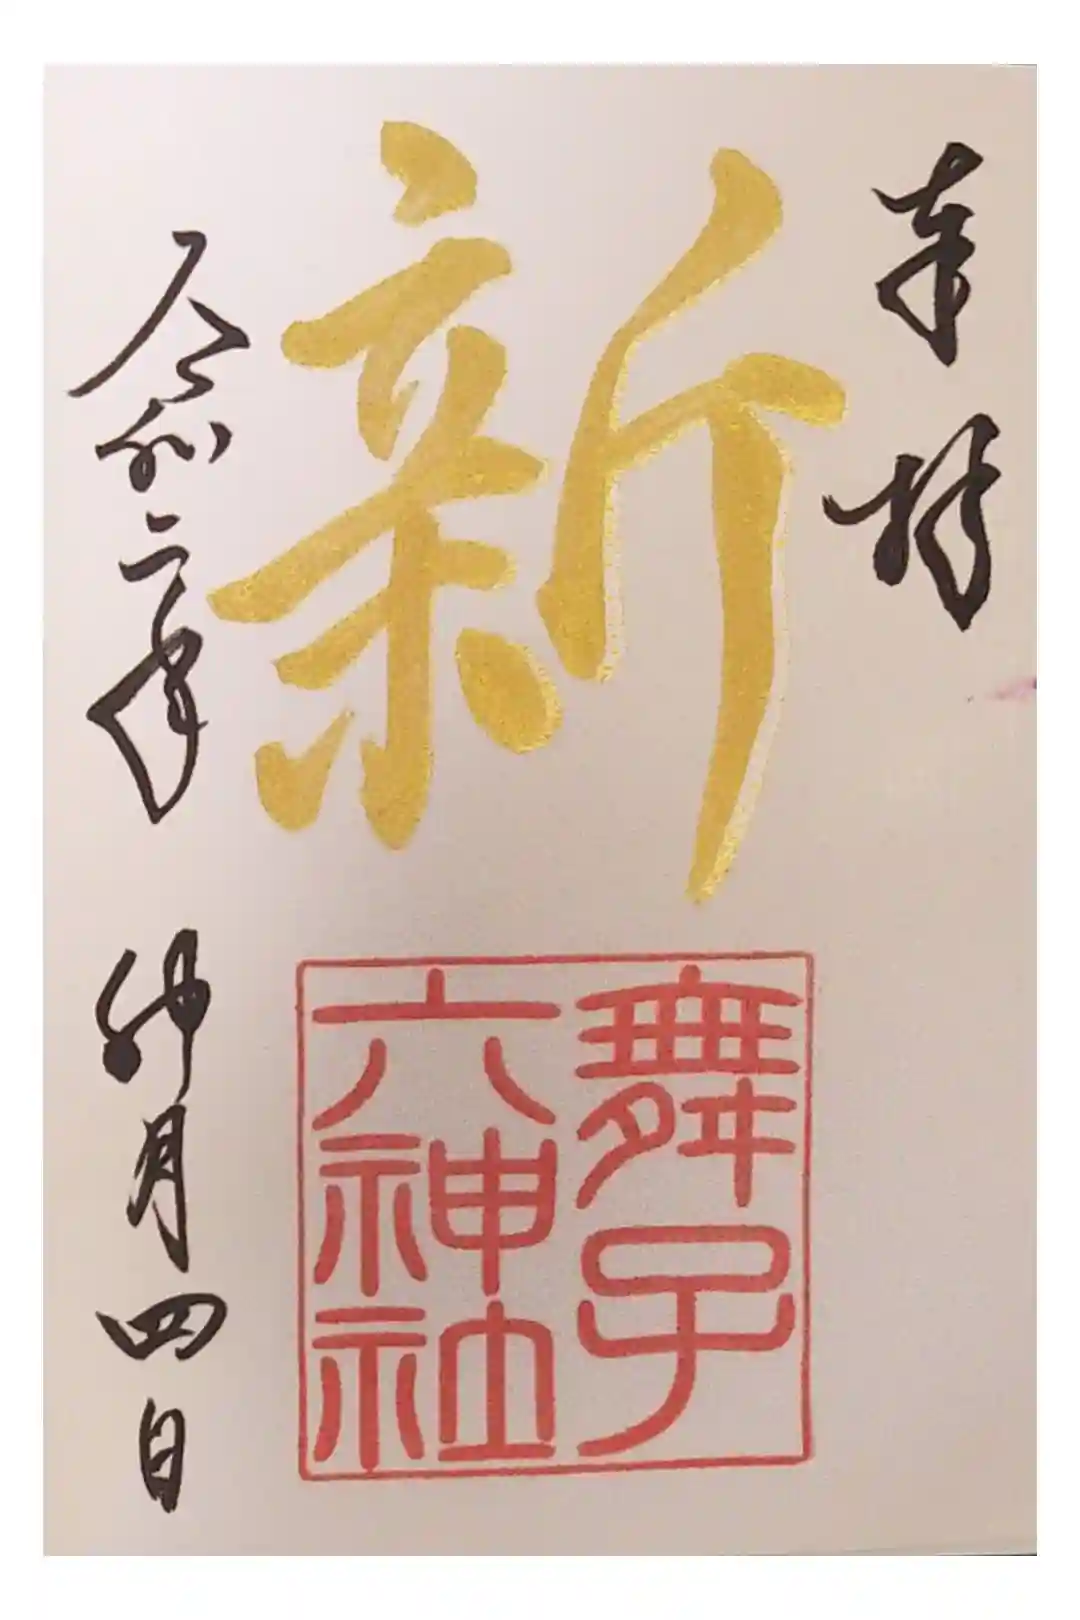 奉拝
新
舞子
六神社
令和二年 卯月四日